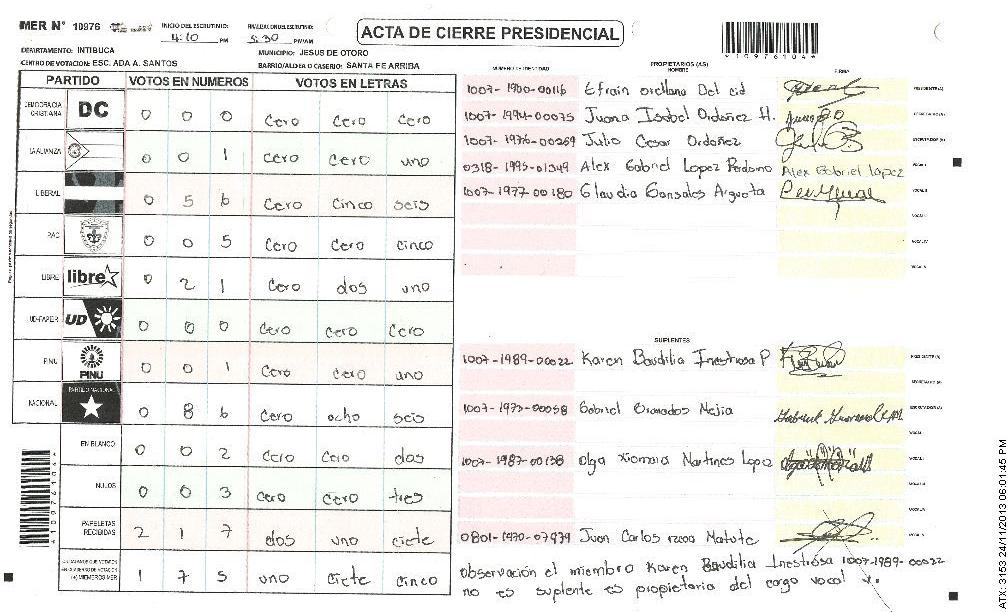 MER N° 10976
INICIO DEL ESCRUTINIO: 4:10 PM
FINALIZACION DEL ESCRUTINIO: 5:30 PM/AM
ACTA DE CIERRE PRESIDENCIAL
*10976104*
DEPARTAMENTO: INTIBUCA
MUNICIPIO: JESUS DE OTORO
CENTRO DE VOTACION: ESC. ADA A. SANTOS
BARRIO/ALDEA O CASERIO: SANTA FE ARRIBA
PARTIDO VOTOS EN NUMEROS VOTOS EN LETRAS
DEMOCRACIA CRISTIANA DC 0 0 0 Cero Cero Cero
LA ALIANZA 0 0 1 Cero Cero uno
LIBERAL 0 5 6 Cero Cinco seis
PAC 0 0 5 Cero Cero cinco
LIBRE libre 0 2 1 Cero dos uno
UD-FAPER UD 0 0 0 Cero Cero Cero
PINU PINU 0 0 1 Cero Cero uno
NACIONAL PARTIDO NACIONAL 0 8 6 Cero ocho seis
EN BLANCO 0 0 2 Cero Cero dos
NULOS 0 0 3 Cero Cero tres
PAPELETAS RECIBIDAS 2 1 7 dos uno ciete
CIUDADANOS QUE VOTARON EN CUADERNO DE VOTACION (+) MIEMBROS MER 1 7 5 uno Ciete Cinco
NUMERO DE IDENTIDAD PROPIETARIOS (AS) NOMBRE FIRMA
1007-1960-00116 Efrain orellana Del cid PRESIDENTE(A)
1007-1994-00075 Juana Isabel Ordoñez H. SECRETARIO(A)
1007-1976-00269 Julio Cesar Ordoñez ESCRUTADOR(A)
0318-1995-01349 Alex Gabriel Lopez Perdomo Alex Gabriel lopez VOCAL I
1007-1977-00180 Glaudia Gonsales Argueta VOCAL II
VOCAL III
VOCAL IV
VOCAL V
SUPLENTES
1007-1989-00022 Karen Baudilia Inestrosa P PRESIDENTE(A)
SECRETARIO(A)
1007-1975-00058 Gabriel Granados Mejia ESCRUTADOR(A)
VOCAL I
1007-1987-00138 Olga Xiomara Martines Lopez VOCAL II
VOCAL III
VOCAL IV
0801-1970-07979 Juan Carlos Matute VOCAL V
Observación el miembro Karen Baudilia Inestrosa 1007-1989-00022
no es suplente es propietaria del cargo vocal v.
*10976104*
ATX: 3153 24/11/2013 06:01:45 PM